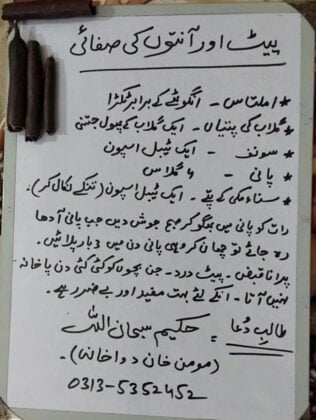 پیٹ اور آنتوں کی صفائی
* املتاس - انگوٹھے کے برابر ٹکڑا
* گلاب کی پتیاں - ایک گلاب کے پھول جتنی
* سونف - ایک ٹیبل اسپون
* پانی - گلاس
* سناء مکی کے پتے - ایک ٹیبل اسپون (تنکے نکال کر)۔
رات کو پانی میں بھگو کر صبح جوش دیں جب پانی آدھا
رہ جائے تو چھان کر وہی پانی دن میں 3 بار پلائیں۔
پرانا قبض - پیٹ درد - جن بچوں کو کئی کئی دن پاخانہ
نہیں آتا - انکے لئے بہت مفید اور بے ضرر ہے۔
طالبِ دُعا = حکیم سبحان اللہ
(مومن خان دواخانہ)۔
0313-5352452